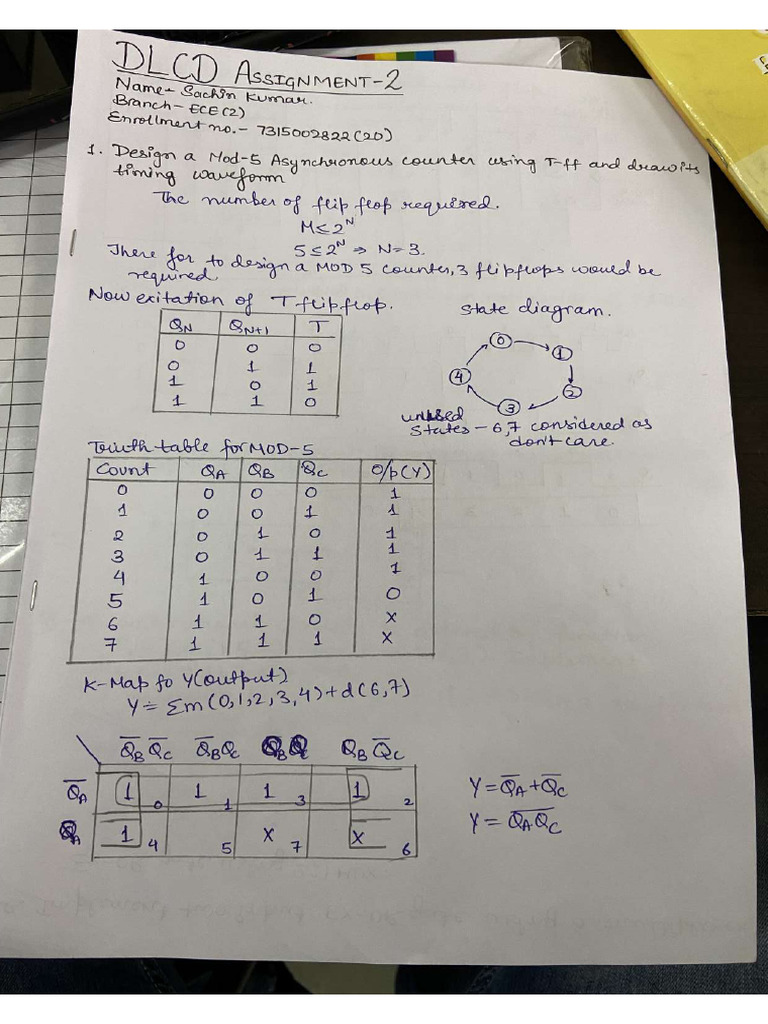 DLCD ASSIGNMENT-2
Name- Sachin Kumar.
Branch- ECE(2)
Enrollment no.- 7315002822(20)
1. Design a Mod-5 Asynchronous counter using T-ff and draw its
timing waveform
The number of flip flop required.
M≤2^N
5≤2^N ⇒ N=3.
There for to design a MOD 5 counter, 3 flipflops would be
required.
Now exitation of T flipflop.
QN QN+1 T
0 0 0
0 1 1
1 0 1
1 1 0
state diagram.
0 1 2 3 4
unused
States - 6,7 considered as
don't care.
Truth table for MOD-5
Count QA QB QC O/p(Y)
0 0 0 0 1
1 0 0 1 1
2 0 1 0 1
3 0 1 1 1
4 1 0 0 1
5 1 0 1 0
6 1 1 0 X
7 1 1 1 X
K-Map fo Y(output)
Y= Σm(0,1,2,3,4)+d(6,7)
Q̅B Q̅C Q̅B QC QB QC QB Q̅C
Q̅A 1 0 1 1 1 3 1 2
QA 1 4 5 X 7 X 6
Y= Q̅A+Q̅C
Y= \overline{QAQC}